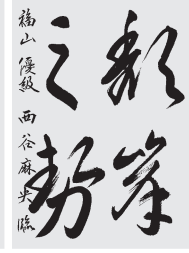 頽峯
之勢
福山 優級 西谷麻央 臨